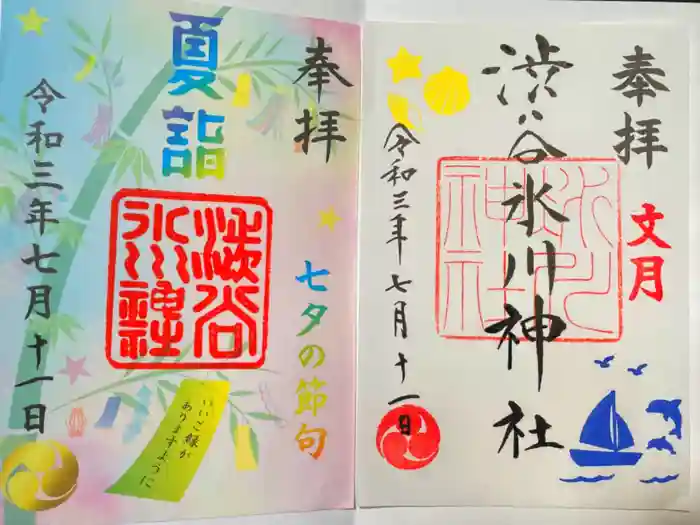 奉拝
文月
渋谷氷川神社
令和三年七月十一日
奉拝
七夕の節句
夏詣
渋谷
氷川神社
いいご縁が
ありますように
令和三年七月十一日